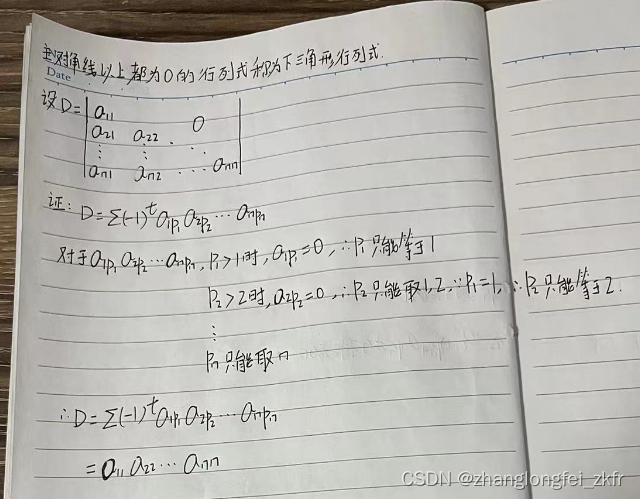 主对角线以上都为0的行列式称为下三角形行列式.
Date
设D= | a₁₁
a₂₁ a₂₂ ⋱ 0
⋮ ⋮ ⋱
aₙ₁ aₙ₂ ⋯ aₙₙ |
证: D=Σ(-1)ᵗa₁ₚ₁a₂ₚ₂⋯aₙₚₙ
对于a₁ₚ₁a₂ₚ₂⋯aₙₚₙ, P₁>1时, a₁ₚ₁=0, ∴P₁只能等于1
P₂>2时, a₂ₚ₂=0, ∴P₂只能取1,2, ∵P₁=1, ∴P₂只能等于2.
⋮
Pₙ只能取n
∴D=Σ(-1)ᵗa₁ₚ₁a₂ₚ₂⋯aₙₚₙ
=a₁₁a₂₂⋯aₙₙ
CSDN @zhanglongfei_zkfr